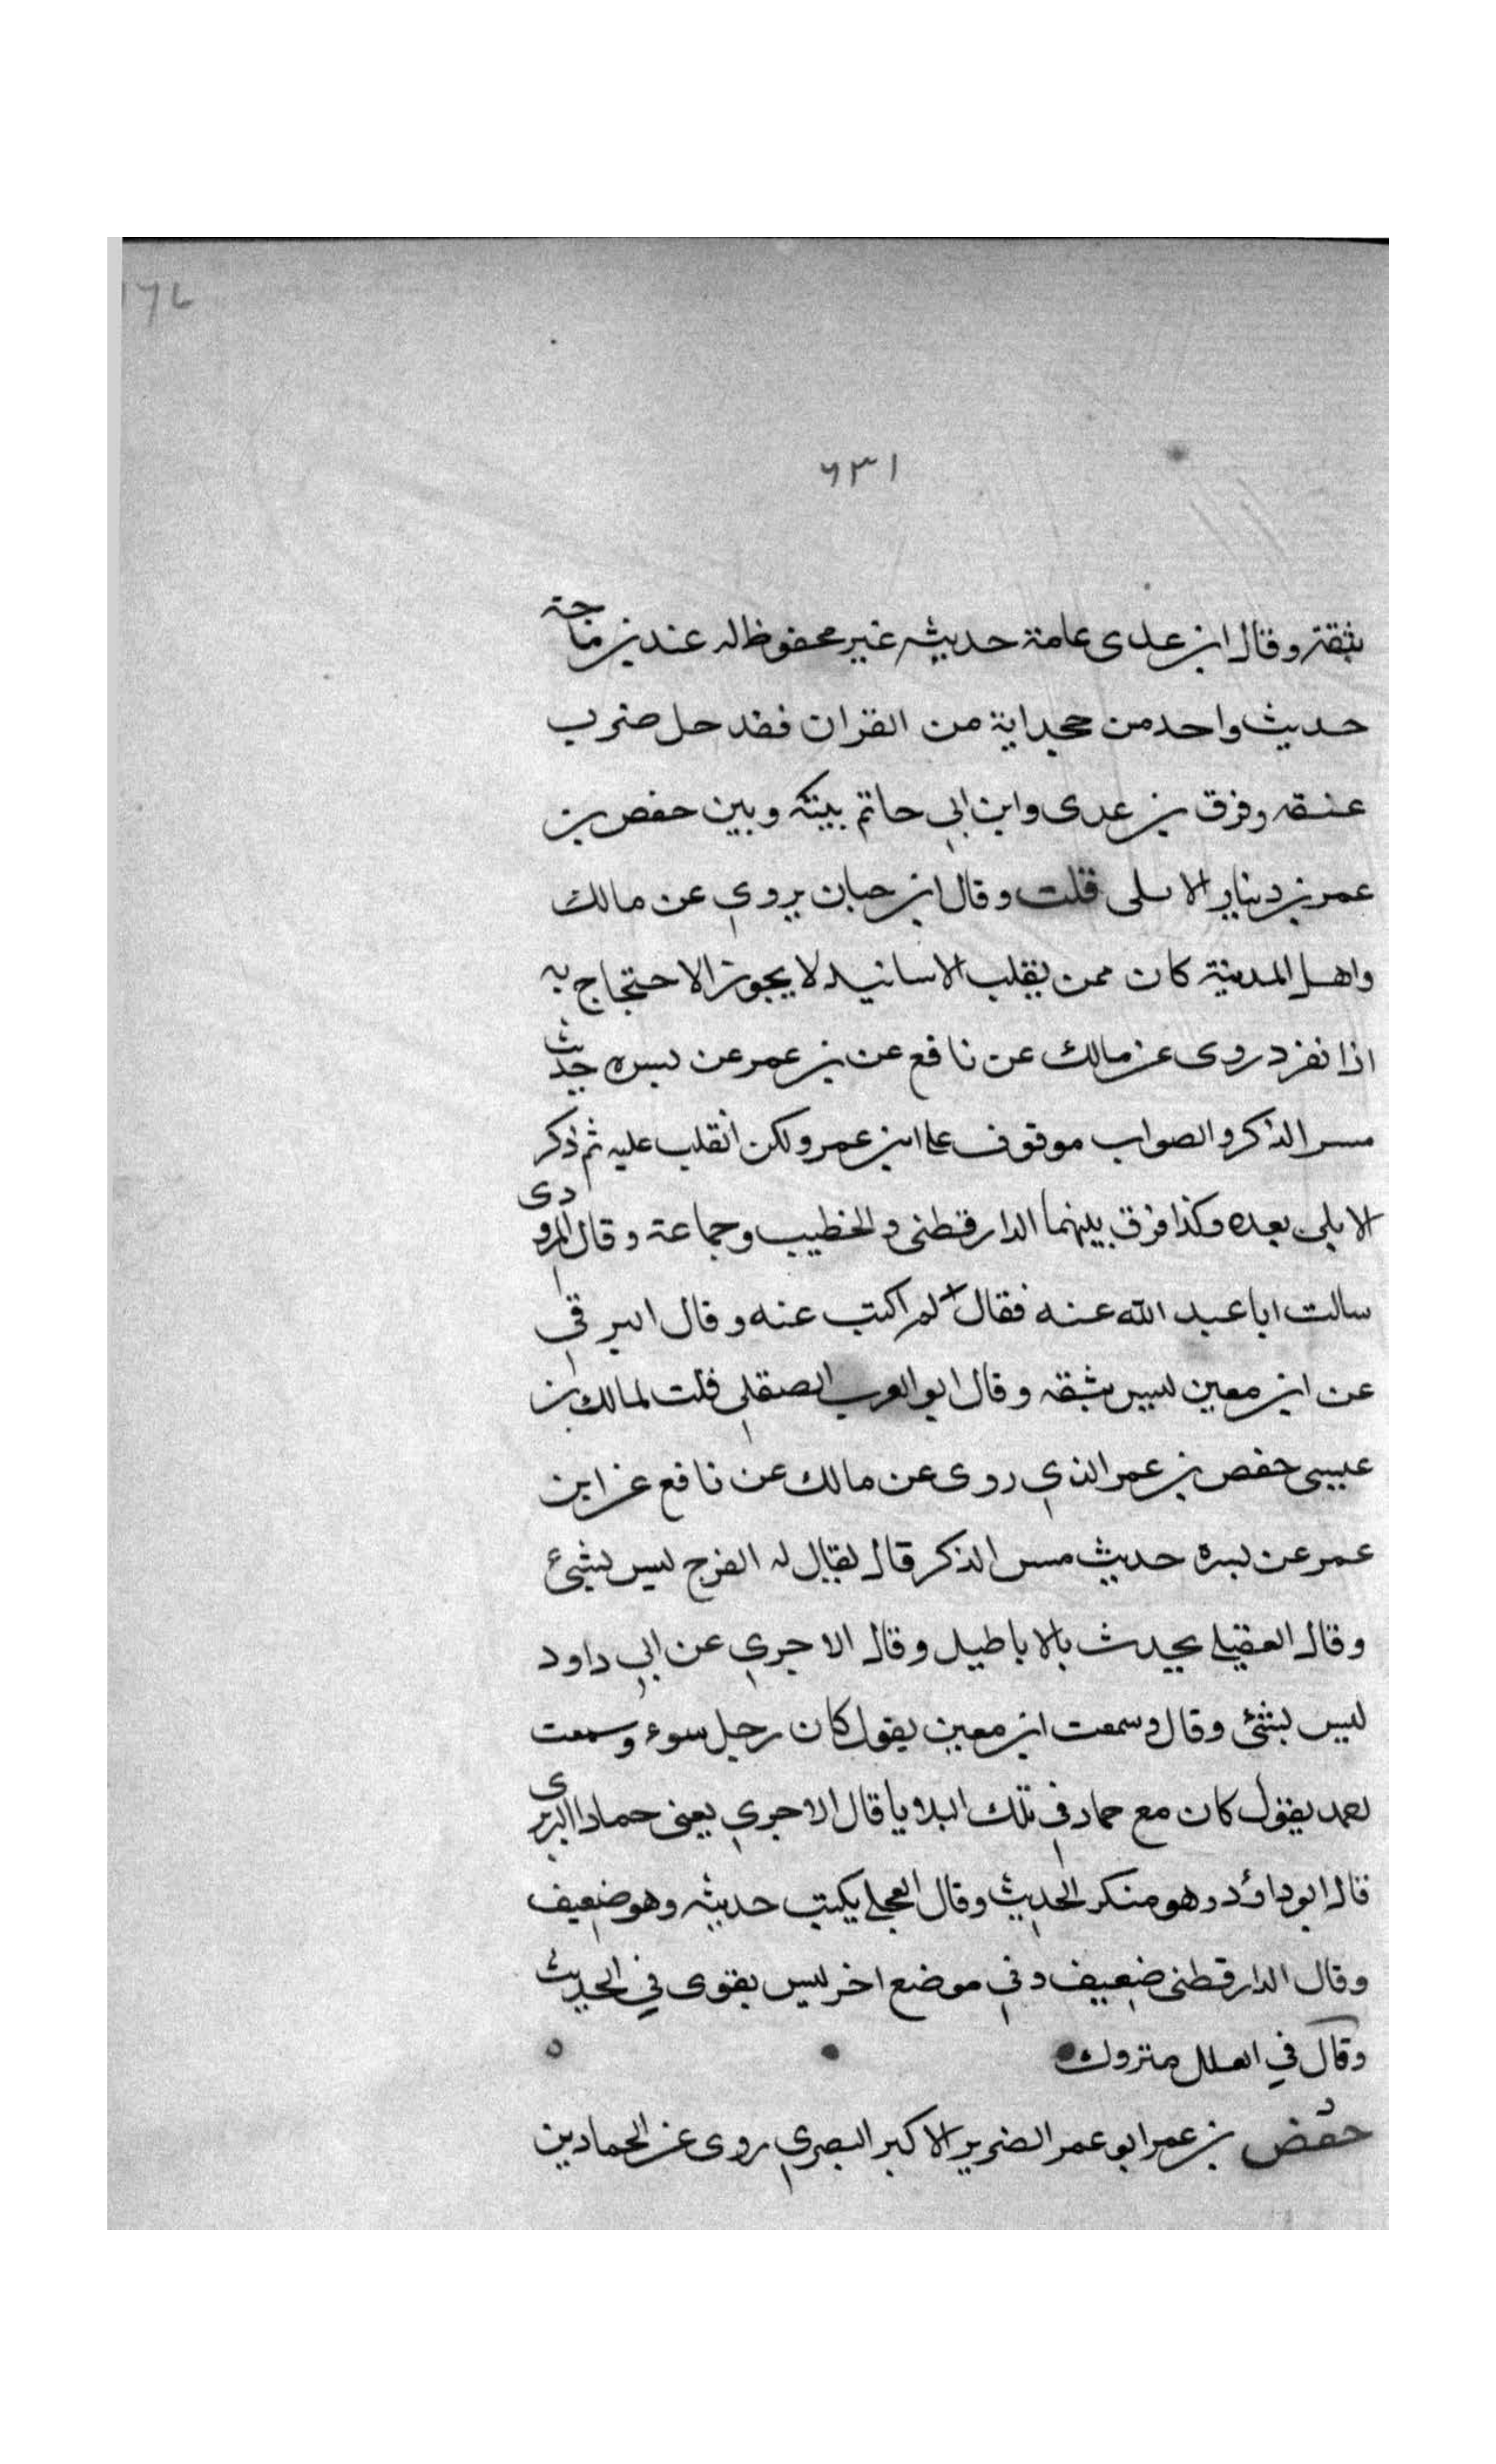 ١٦٤
٦٣١
بثقة وقال ابن عدى عامة حديثه غير محفوظ له عند بن ماجة
حديث واحد من جحد اية من القران فقد حل ضرب
عنقه وفرق بن عدى وابن ابي حاتم بينه وبين حفص بن
عمر بن دينار الايلى قلت وقال ابن حبان يروي عن مالك
واهل المدينة كان ممن يقلب الاسانيد لا يجوز الاحتجاج به
اذا نفرد روى عن مالك عن نافع عن بن عمر عن بسره حديث
مس الذكر والصواب موقوف على ابن عمر ولكن انقلب عليه ثم ذكر
الايلي بعده وكذا فرق بينهما الدارقطنى والخطيب وجماعة وقال المرودى
سالت ابا عبد الله عنه فقال لم اكتب عنه وقال البرقي
عن ابن معين ليس بثقه وقال ابو العرب الصقلي قلت لمالك بن
عيسى حفص بن عمر الذي روى عن مالك عن نافع عن ابن
عمر عن بسره حديث مس الذكر قال يقال له الفرج ليس بشيء
وقال العقيلي يحدث بالاباطيل وقال الاجري عن ابي داود
ليس بشئ وقال وسمعت ابن معين يقول كان رجل سوء وسمعت
بعد يقول كان مع حماد في تلك البلايا قال الاجري يعنى حمادا البربرى
قال ابو داؤد وهو منكر الحديث وقال العجلي يكتب حديثه وهو ضعيف
وقال الدارقطنى ضعيف وفي موضع اخر ليس بقوى في الحديث
وقال في العلل متروك
حفص بن عمر ابو عمر الضرير الاكبر البصري روى عن الحمادين